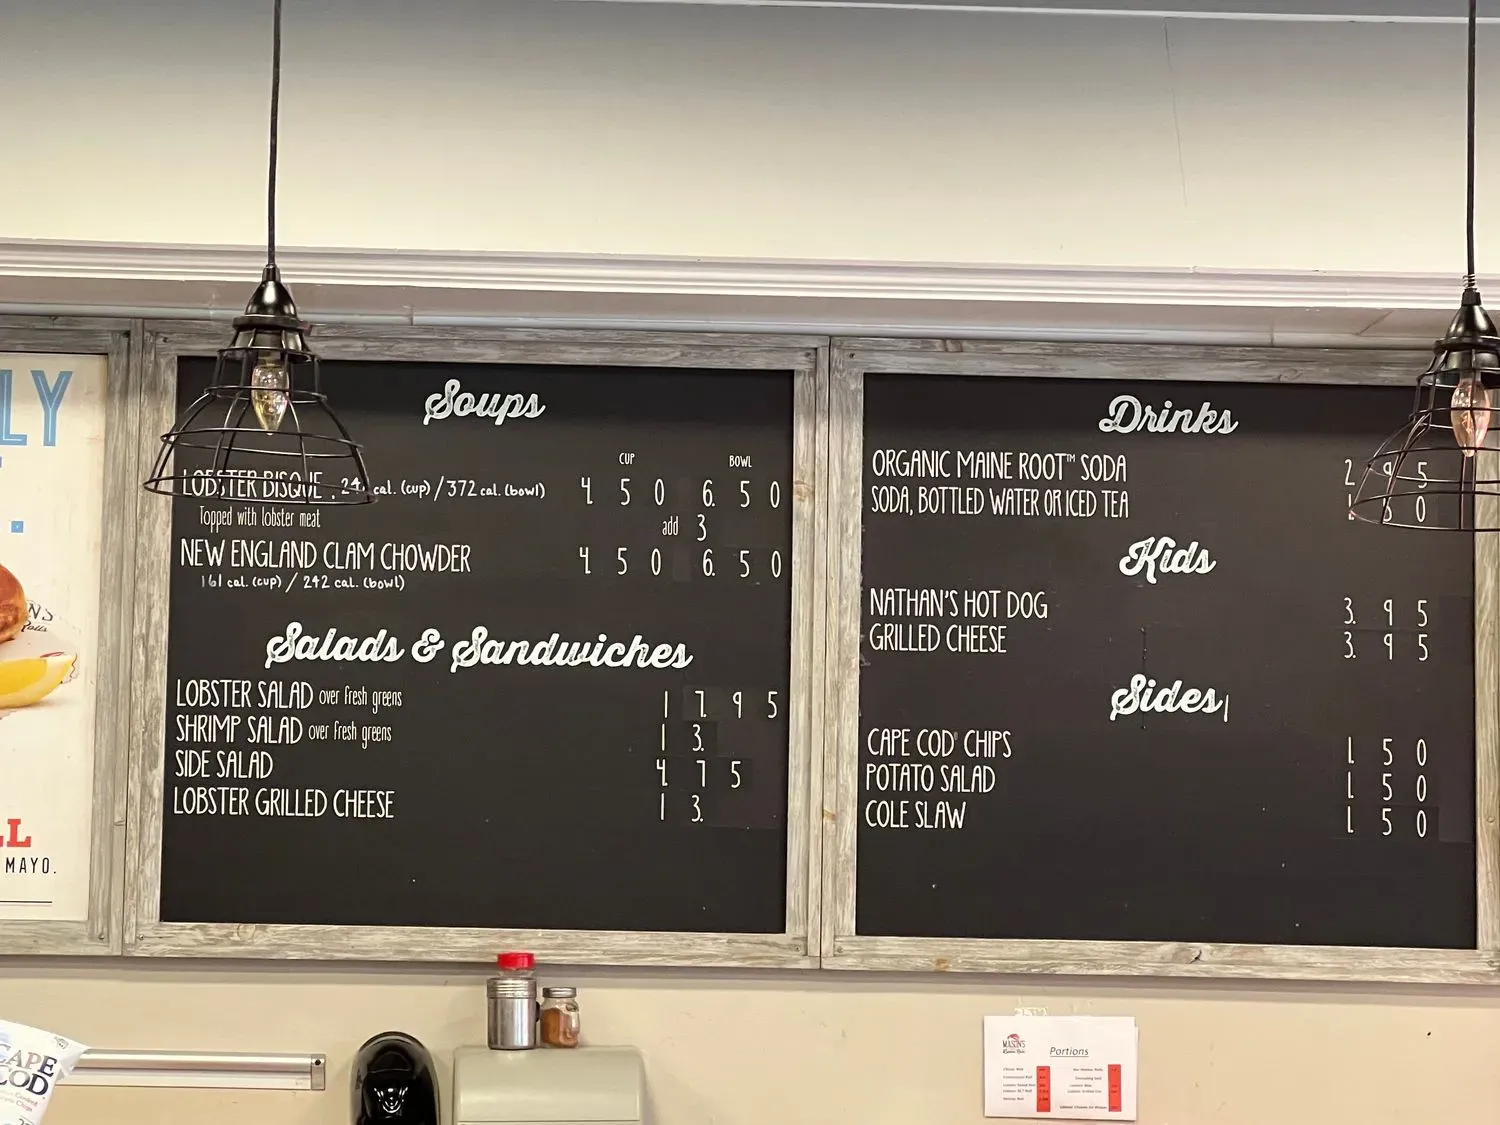 LY
LL
MAYO.
Soups
CUP BOWL
LOBSTER BISQUE cal. (cup) / 372 cal. (bowl) 4. 5 0 6. 5 0
Topped with lobster meat add 3
NEW ENGLAND CLAM CHOWDER 4. 5 0 6. 5 0
161 cal. (cup) / 242 cal. (bowl)
Salads & Sandwiches
LOBSTER SALAD over fresh greens 1 7. 9 5
SHRIMP SALAD over fresh greens 1 3.
SIDE SALAD 4. 7 5
LOBSTER GRILLED CHEESE 1 3.
Drinks
ORGANIC MAINE ROOT™ SODA 2. 9 5
SODA, BOTTLED WATER OR ICED TEA
Kids
NATHAN'S HOT DOG 3. 9 5
GRILLED CHEESE 3. 9 5
Sides
CAPE COD® CHIPS 1. 5 0
POTATO SALAD 1. 5 0
COLE SLAW 1. 5 0
CAPE
COD
MASON'S
Portions